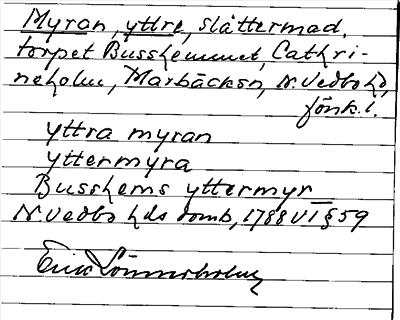 Myran, yttre, slåttermad,
torpet Busshemmet, Cathri-
neholm, Marbäcksn, N. Vedbo hd,
Jönk. l.
yttra myran
yttermyra
Busshems yttermyr
N. Vedbo hds domb, 1788 VI § 59
Erik Lönnerholm